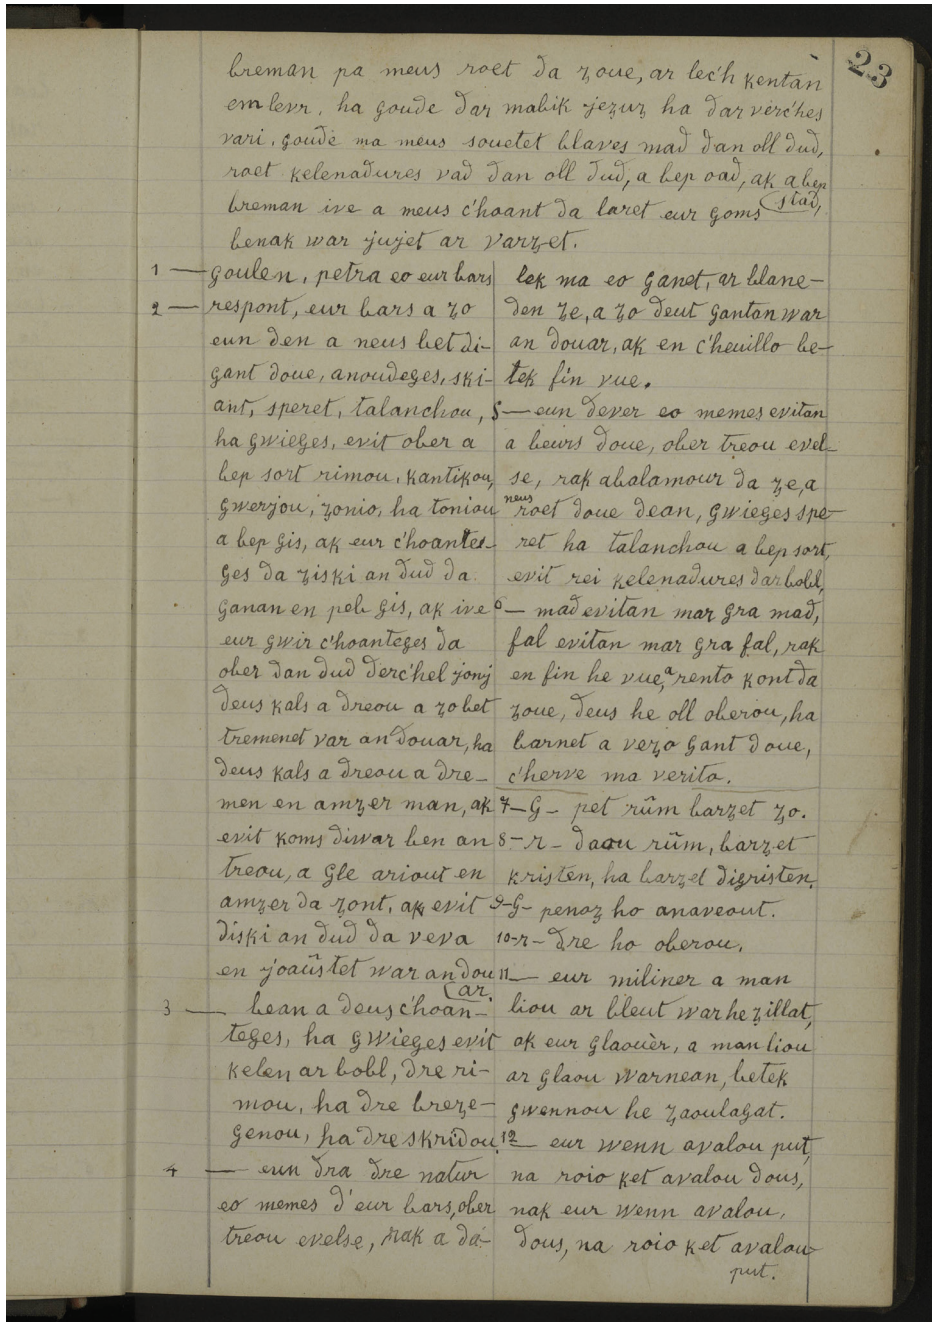 23
breman pa meus roet da zoue, ar lec'h kentan
em levr, ha goude dar mabik jezuz ha dar verc'hes
vari, goude ma meus souetet blaves mad dan oll dud,
roet kelenadures vad dan oll dud, a bep oad, ak a bep
stad,
breman ive a meus c'hoant da laret eur goms
benak war jujet ar varzet.
1 — goulen, petra eo eur bars
2 — respont, eur bars a zo
eun den a neus bet di-
gant doue, anoudeges, ski-
ant, speret, talanchou,
ha gwieges, evit ober a
bep sort rimou, kantikou,
gwerjou, zonio, ha toniou
a bep gis, ak eur c'hoante-
ges da ziski an dud da
ganan en peb gis, ak ive
eur gwir c'hoanteges da
ober dan dud derc'hel jonj
deus kals a dreou a zo bet
tremenet var an douar, ha
deus kals a dreou a dre-
men en amzer man, ak
evit koms diwar ben an
treou, a gle ariout en
amzer da zont, ak evit
diski an dud da veva
en joaüstet war an dou
ar.
3 — bean a deus c'hoan-
teges, ha gwieges evit
kelen ar bobl, dre ri-
mou, ha dre breze-
genou, ha dre skridou.
4 — eun dra dre natur
eo memes d'eur bars, ober
treou evelse, rak a da-
lek ma eo ganet, ar blane-
den ze, a zo deut gantan war
an douar, ak en c'heuillo be-
tek fin vue.
5 — eun dever eo memes evitan
a beurs doue, ober treou evel-
se, rak abalamour da ze, a
neus roet doue dean, gwieges spe-
ret ha talanchou a bep sort,
evit rei kelenadures dar bobl,
6 — mad evitan mar gra mad,
fal evitan mar gra fal, rak
en fin he vue, a rento kont da
zoue, deus he oll oberou, ha
barnet a vezo gant doue,
c'herve ma verito.
7 - G - pet rüm barzet zo.
8 - r - daou rüm, barzet
kristen, ha barzet digristen.
9 - G - penoz ho anaveout.
10 - r - dre ho oberou.
11 — eur miliner a man
liou ar bleut war he zillat,
ak eur glaouèr, a man liou
ar glaou warnean, betek
gwennou he zaoulagat.
12 — eur wenn avalou put,
na roio ket avalou dous,
nak eur wenn avalou,
dous, na roio ket avalou
put.